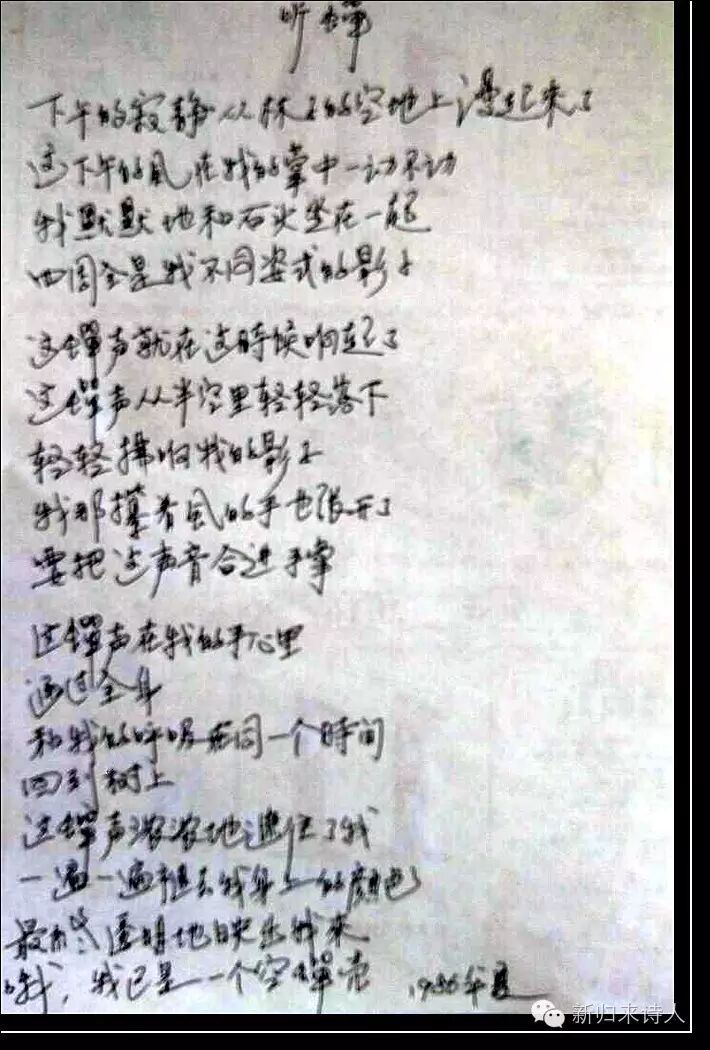 听蝉
下午的寂静从林子的空地上漫起来了
这下午的风在我的掌中一动不动
我默默地和石头坐在一起
四周全是我不同姿式的影子
这蝉声就在这时候响起了
这蝉声从半空里轻轻落下
轻轻拂响我的影子
我那摸着风的手也张开了
要把这声音合进手掌
这蝉声在我的手心里
通过全身
和我的呼吸在同一个时间
回到树上
这蝉声浓浓地遮住了我
一遍一遍褪去我身上的颜色
最终透明地映出我来
哦,我已是一个空蝉壳
1986年夏
新归来诗人